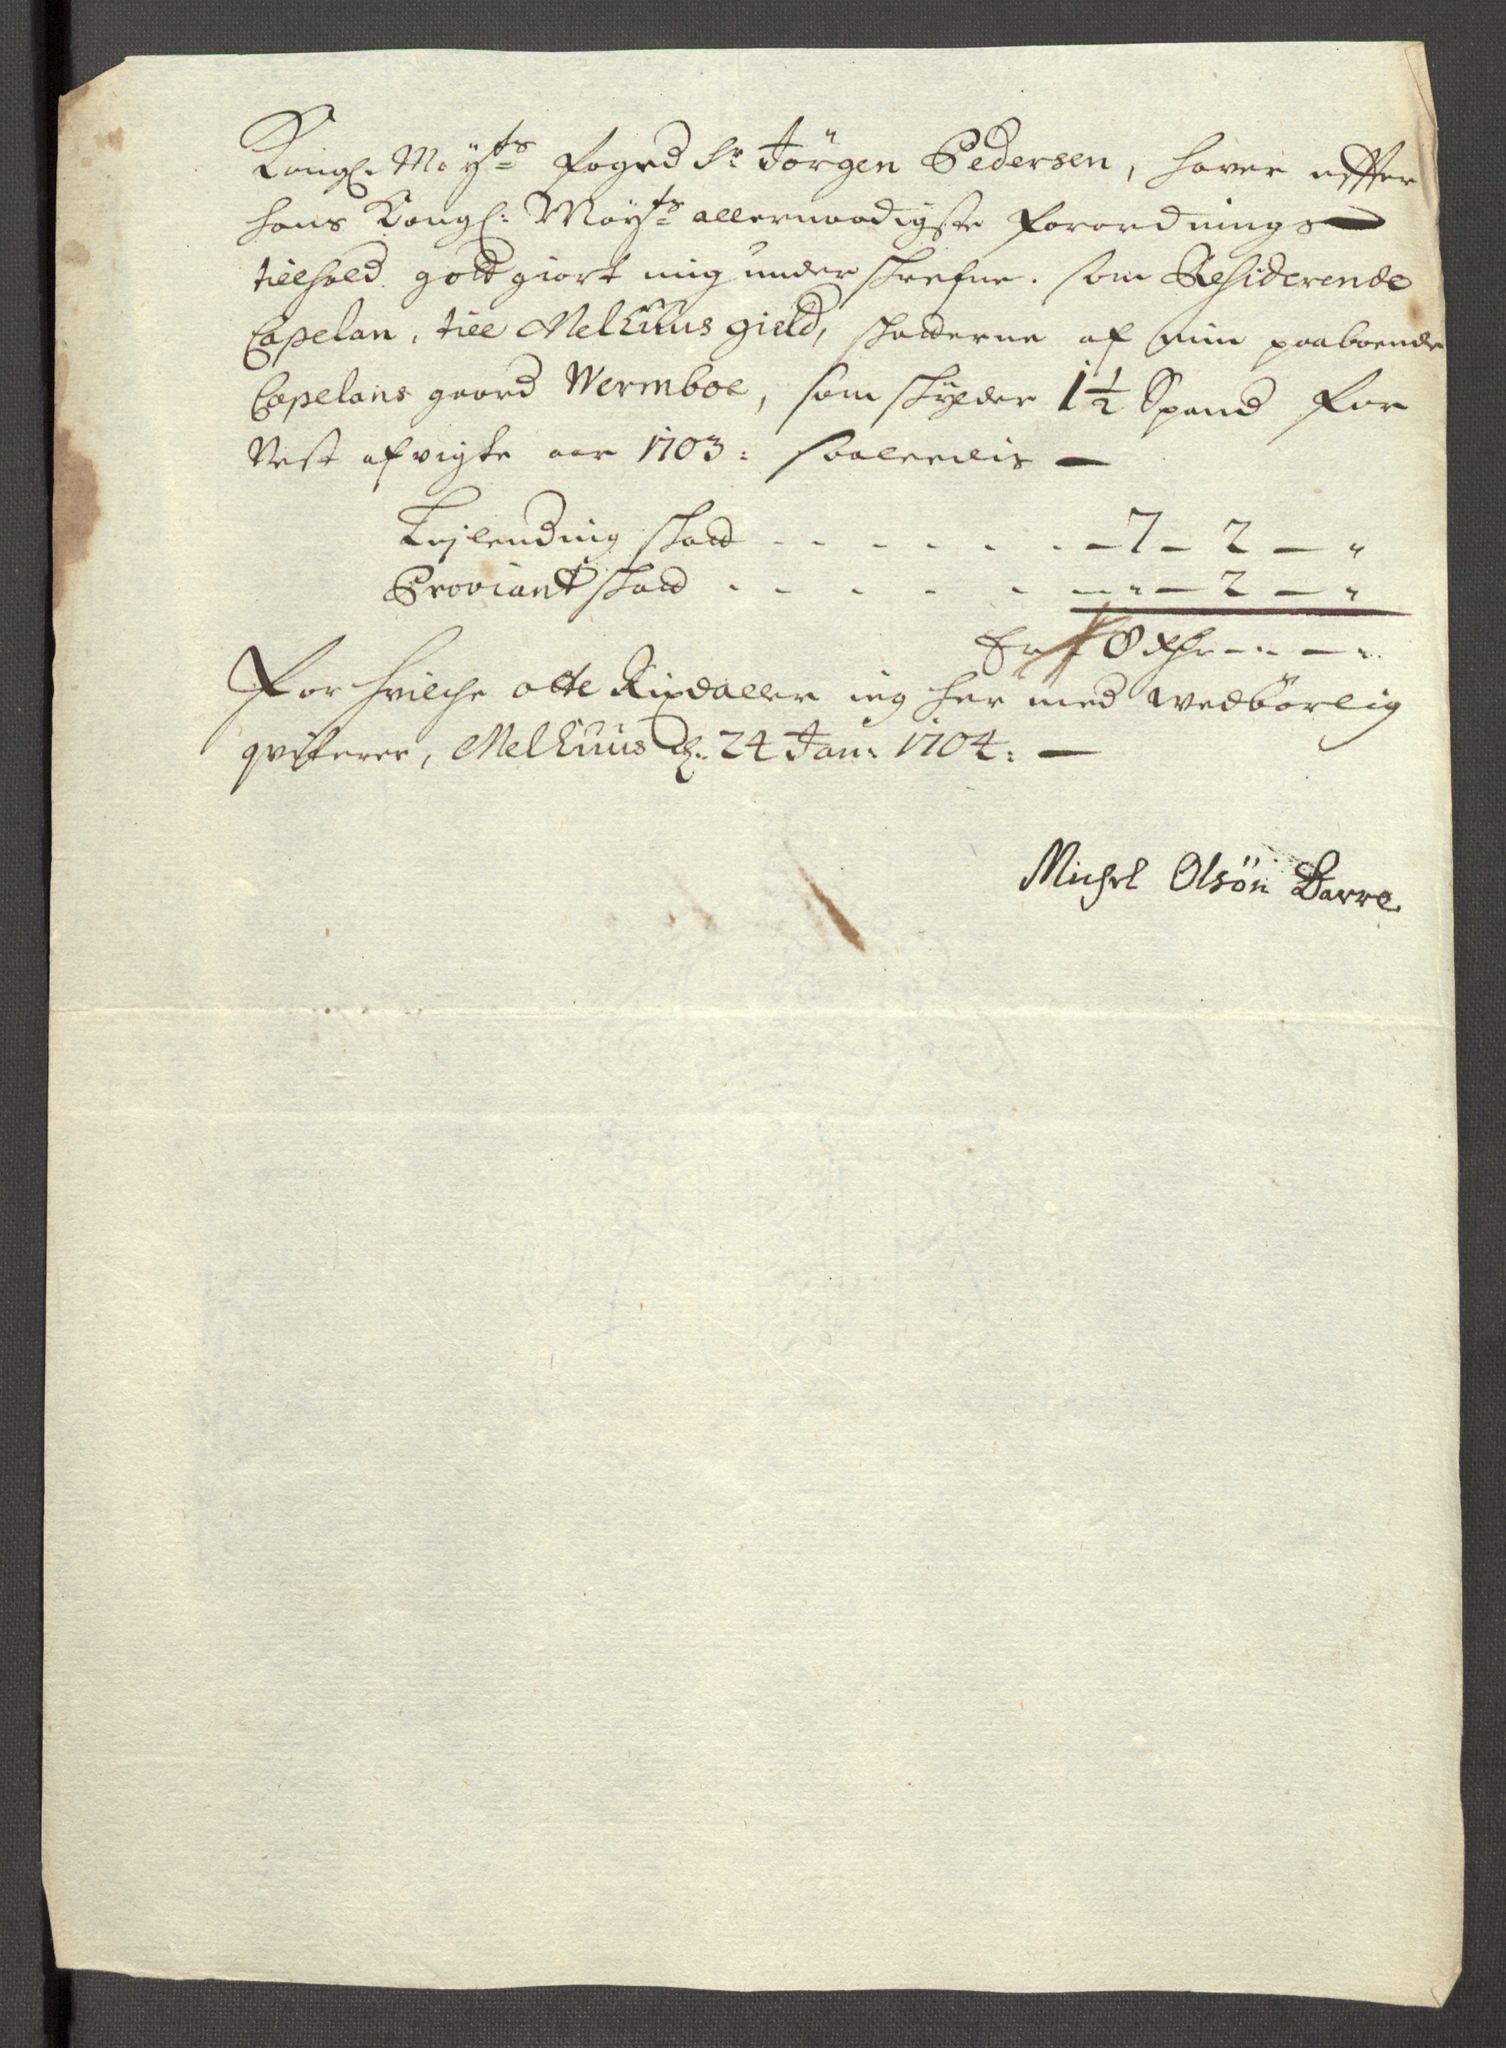 Kongl. Mayts foged Sr Jörgen Pedersen, haver efter
hans Kongl: Mayts allernaadigste forordnings
tillhold godtgiort mig underskrefne. som Residerende
Capelan, till Melhuus gield, skatterne af min paaboende
Capelans gaard Wermboe, som skylder 1½ Spand for
Nest afvigte aar 1703: saaledis —
Leylending skatt . . . . . . — 7 — 2 — "
Proviant skatt . . . . . . — " — 2 — "
Er 8 Rdr — " — "
For hvilche otte Rixdaller ieg her med wedbörlig
qviterer, Melhuus d. 24 Jan: 1704: —
Michel Olsön Darre